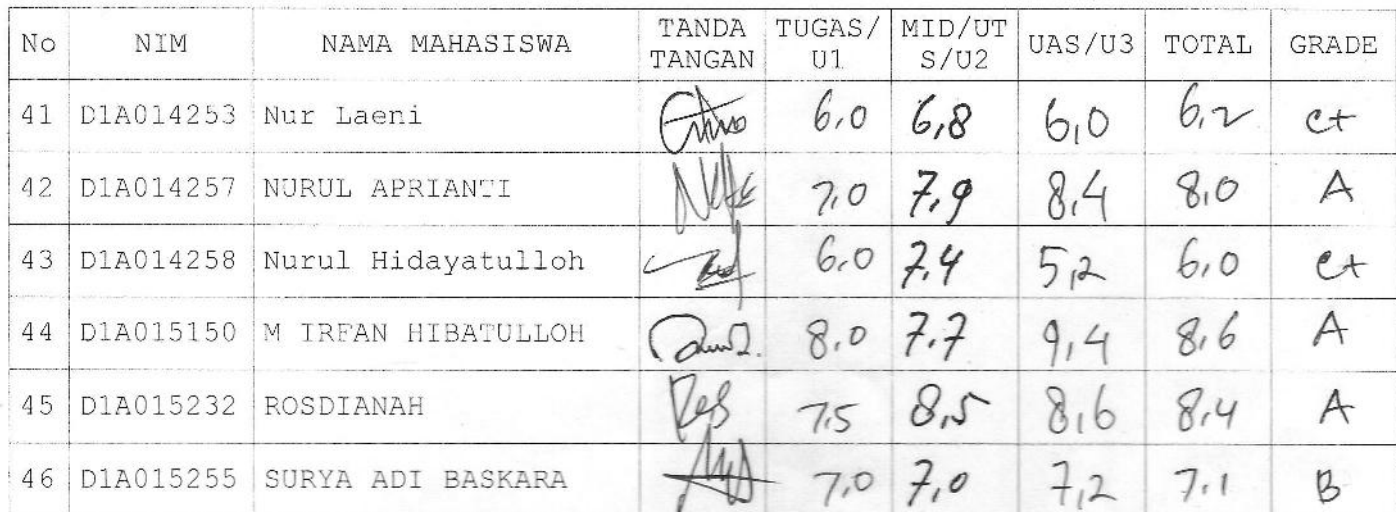 No NIM NAMA MAHASISWA TANDA TANGAN TUGAS/U1 MID/UTS/U2 UAS/U3 TOTAL GRADE
41 D1A014253 Nur Laeni 6,0 6,8 6,0 6,2 C+
42 D1A014257 NURUL APRIANTI 7,0 7,9 8,4 8,0 A
43 D1A014258 Nurul Hidayatulloh 6,0 7,4 5,2 6,0 C+
44 D1A015150 M IRFAN HIBATULLOH 8,0 7,7 9,4 8,6 A
45 D1A015232 ROSDIANAH 7,5 8,5 8,6 8,4 A
46 D1A015255 SURYA ADI BASKARA 7,0 7,0 7,2 7,1 B